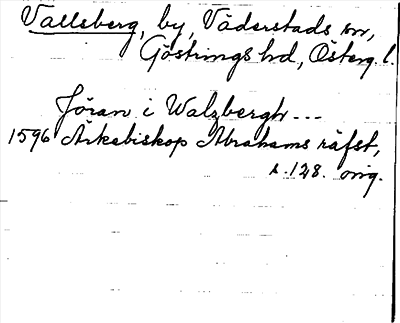 Vallsberg, by, Väderstads sn,
Göstrings hd, Österg. l.
Jöran i Walzbergh ---
1596 Ärkebiskop Abrahams räfst,
s. 128. orig.